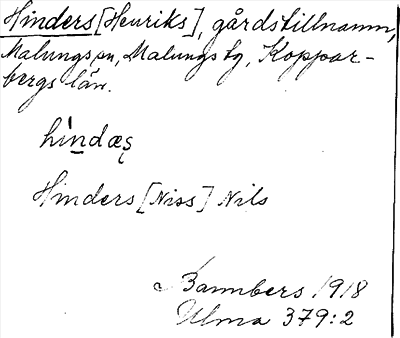 Hinders [Henriks], gårdstillnamn,
Malungs sn, Malungs tg, Koppar-
bergs län.
hìndæs̨
Hinders [Niss] Nils
Bannbers 1918
Ulma 379:2